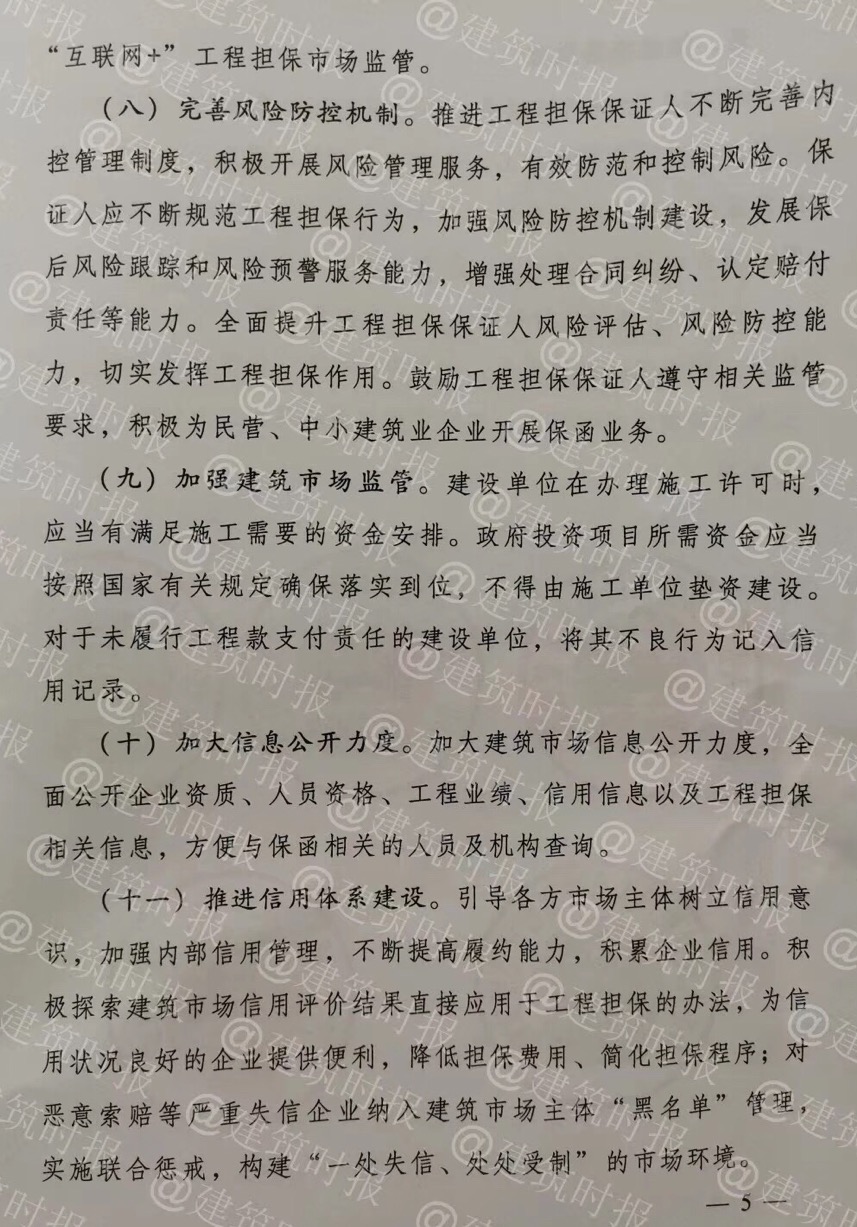 “互联网+”工程担保市场监管。
（八）完善风险防控机制。推进工程担保保证人不断完善内
控管理制度，积极开展风险管理服务，有效防范和控制风险。保
证人应不断规范工程担保行为，加强风险防控机制建设，发展保
后风险跟踪和风险预警服务能力，增强处理合同纠纷、认定赔付
责任等能力。全面提升工程担保保证人风险评估、风险防控能
力，切实发挥工程担保作用。鼓励工程担保保证人遵守相关监管
要求，积极为民营、中小建筑业企业开展保函业务。
（九）加强建筑市场监管。建设单位在办理施工许可时，
应当有满足施工需要的资金安排。政府投资项目所需资金应当
按照国家有关规定确保落实到位，不得由施工单位垫资建设。
对于未履行工程款支付责任的建设单位，将其不良行为记入信
用记录。
（十）加大信息公开力度。加大建筑市场信息公开力度，全
面公开企业资质、人员资格、工程业绩、信用信息以及工程担保
相关信息，方便与保函相关的人员及机构查询。
（十一）推进信用体系建设。引导各方市场主体树立信用意
识，加强内部信用管理，不断提高履约能力，积累企业信用。积
极探索建筑市场信用评价结果直接应用于工程担保的办法，为信
用状况良好的企业提供便利，降低担保费用、简化担保程序；对
恶意索赔等严重失信企业纳入建筑市场主体“黑名单”管理，
实施联合惩戒，构建“一处失信、处处受制”的市场环境。
— 5 —
@建筑时报